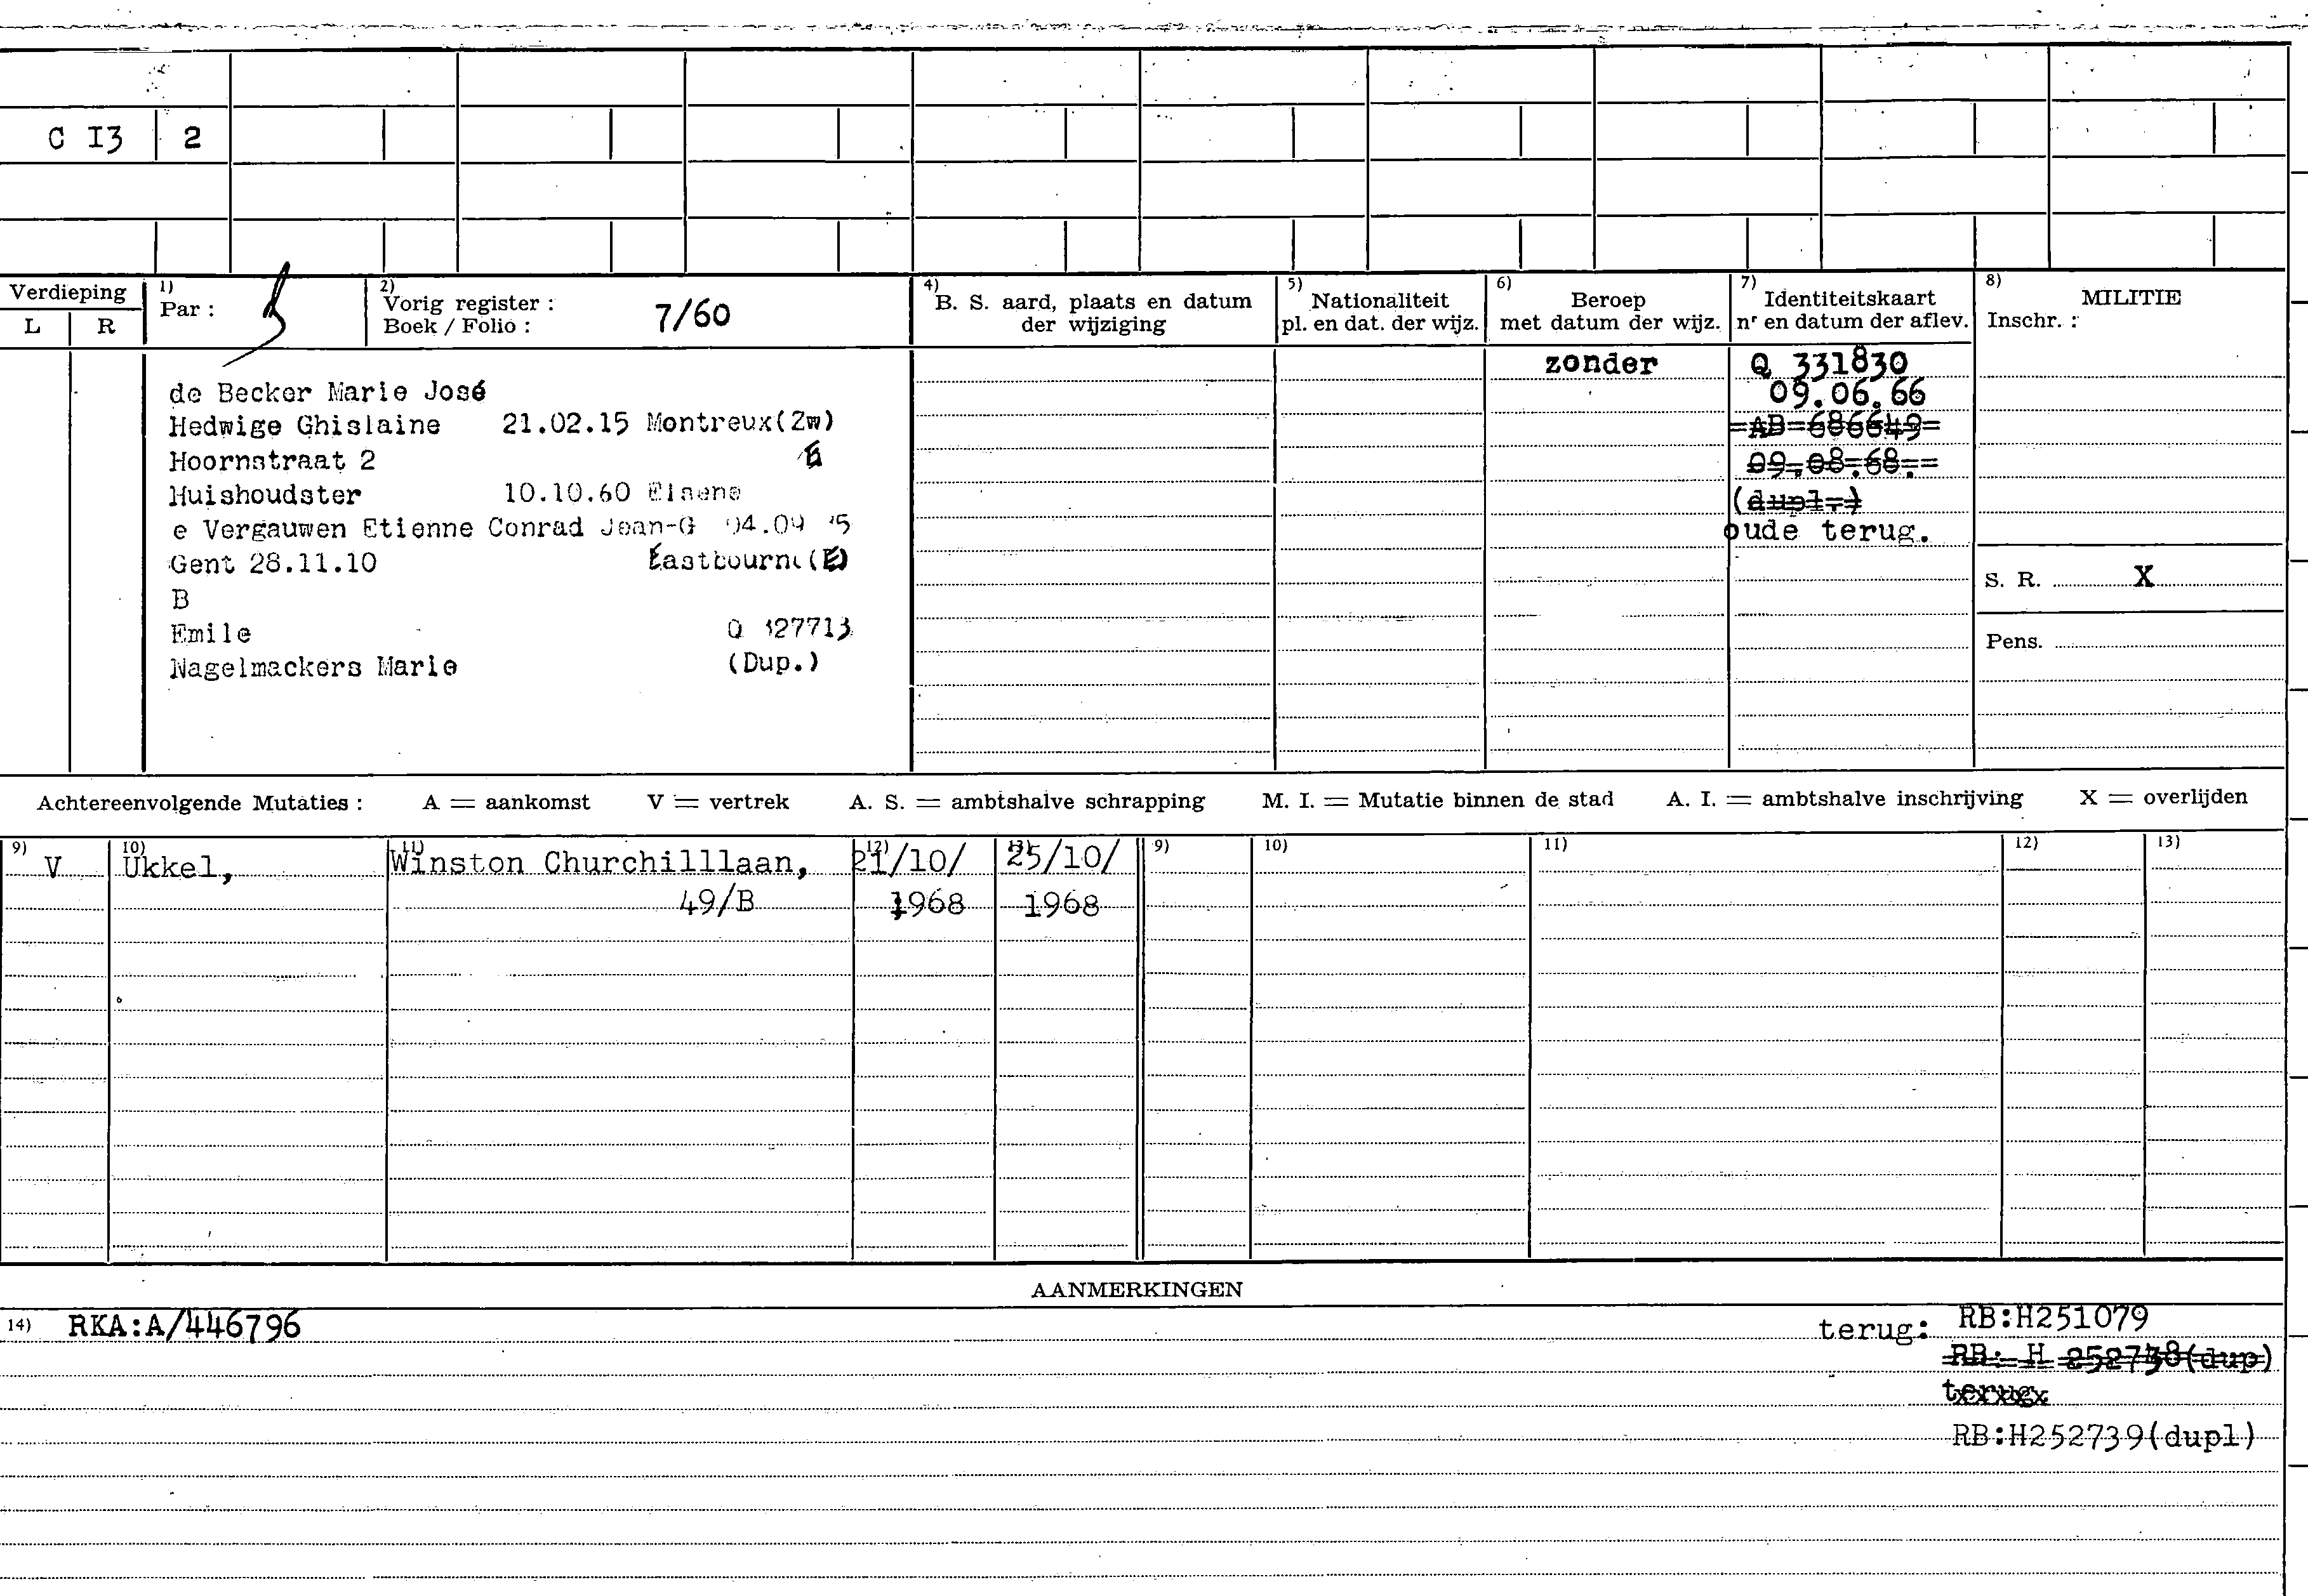 C I3 2
Verdieping
L R
1)
Par :
2)
Vorig register :
Boek / Folio : 7/60
4)
B. S. aard, plaats en datum
der wijziging
5)
Nationaliteit
pl. en dat. der wijz.
6)
Beroep
met datum der wijz.
7)
Identiteitskaart
nr en datum der aflev.
8)
MILITIE
Inschr. :
de Becker Marie José
Hedwige Ghislaine 21.02.15 Montreux(Zw)
Hoornstraat 2
Huishoudster 10.10.60 Elsene
e Vergauwen Etienne Conrad Jean-G 04.09
Gent 28.11.10 Eastbourne(E)
B
Emile Q 327713
Nagelmackers Marie (Dup.)
zonder
Q 331830
09.06.66
=AB=686649=
09.08.68.=
(dupl.)
oude terug.
S. R. X
Pens.
Achtereenvolgende Mutaties : A = aankomst V = vertrek A. S. = ambtshalve schrapping M. I. = Mutatie binnen de stad A. I. = ambtshalve inschrijving X = overlijden
9) 10) 11) 12) 13) 9) 10) 11) 12) 13)
V Ukkel, Winston Churchilllaan, 21/10/ 25/10/
49/B 1968 1968
AANMERKINGEN
14) RKA:A/446796
terug: RB:H251079
RB: H 252738(dup)
terug
RB:H252739(dupl)